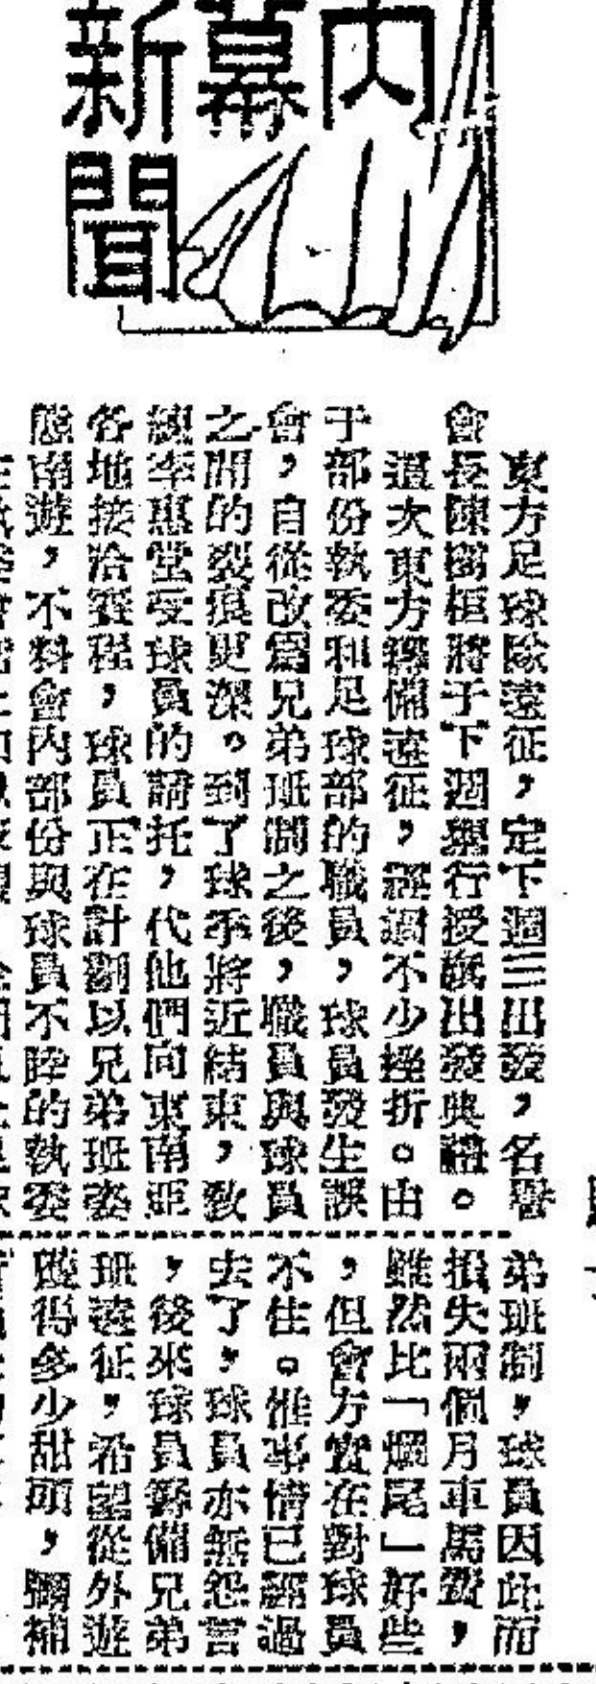 內幕新
聞
東方足球隊遠征，定下週三出發，名譽
會長陳樹桓將于下週舉行授旗出發典禮。
這次東方籌備遠征，經過不少挫折。由
于部份執委和足球部的職員，球員發生誤
會，自從改為兄弟班制之後，職員與球員
之間的裂痕更深。到了球季將近結束，教
練李惠堂受球員的請托，代他們向東南亞
各地接洽賽程，球員正在計劃以兄弟班姿
態南遊，不料會內部份與球員不睦的執委
弟班制，球員因此而
損失兩個月車馬費，
雖然比「爛尾」好些
，但會方實在對球員
不住。惟事情已經過
去了，球員亦無怨言
，後來球員籌備兄弟
班遠征，希望從外遊
獲得多少甜頭，彌補